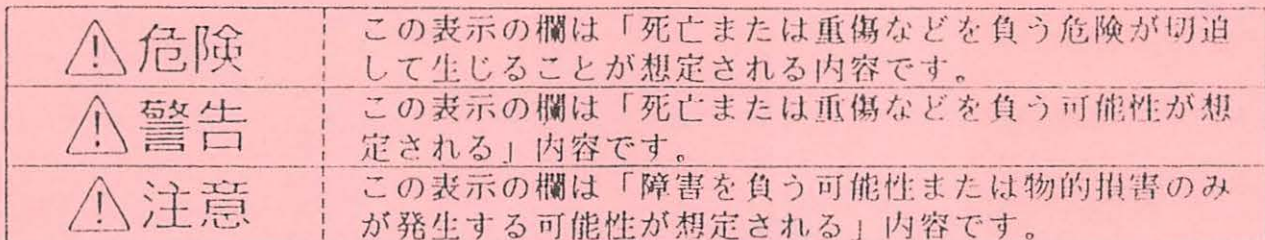 危険
この表示の欄は「死亡または重傷などを負う危険が切迫
して生じることが想定される内容です。
警告
この表示の欄は「死亡または重傷などを負う可能性が想
定される」内容です。
注意
この表示の欄は「障害を負う可能性または物的損害のみ
が発生する可能性が想定される」内容です。